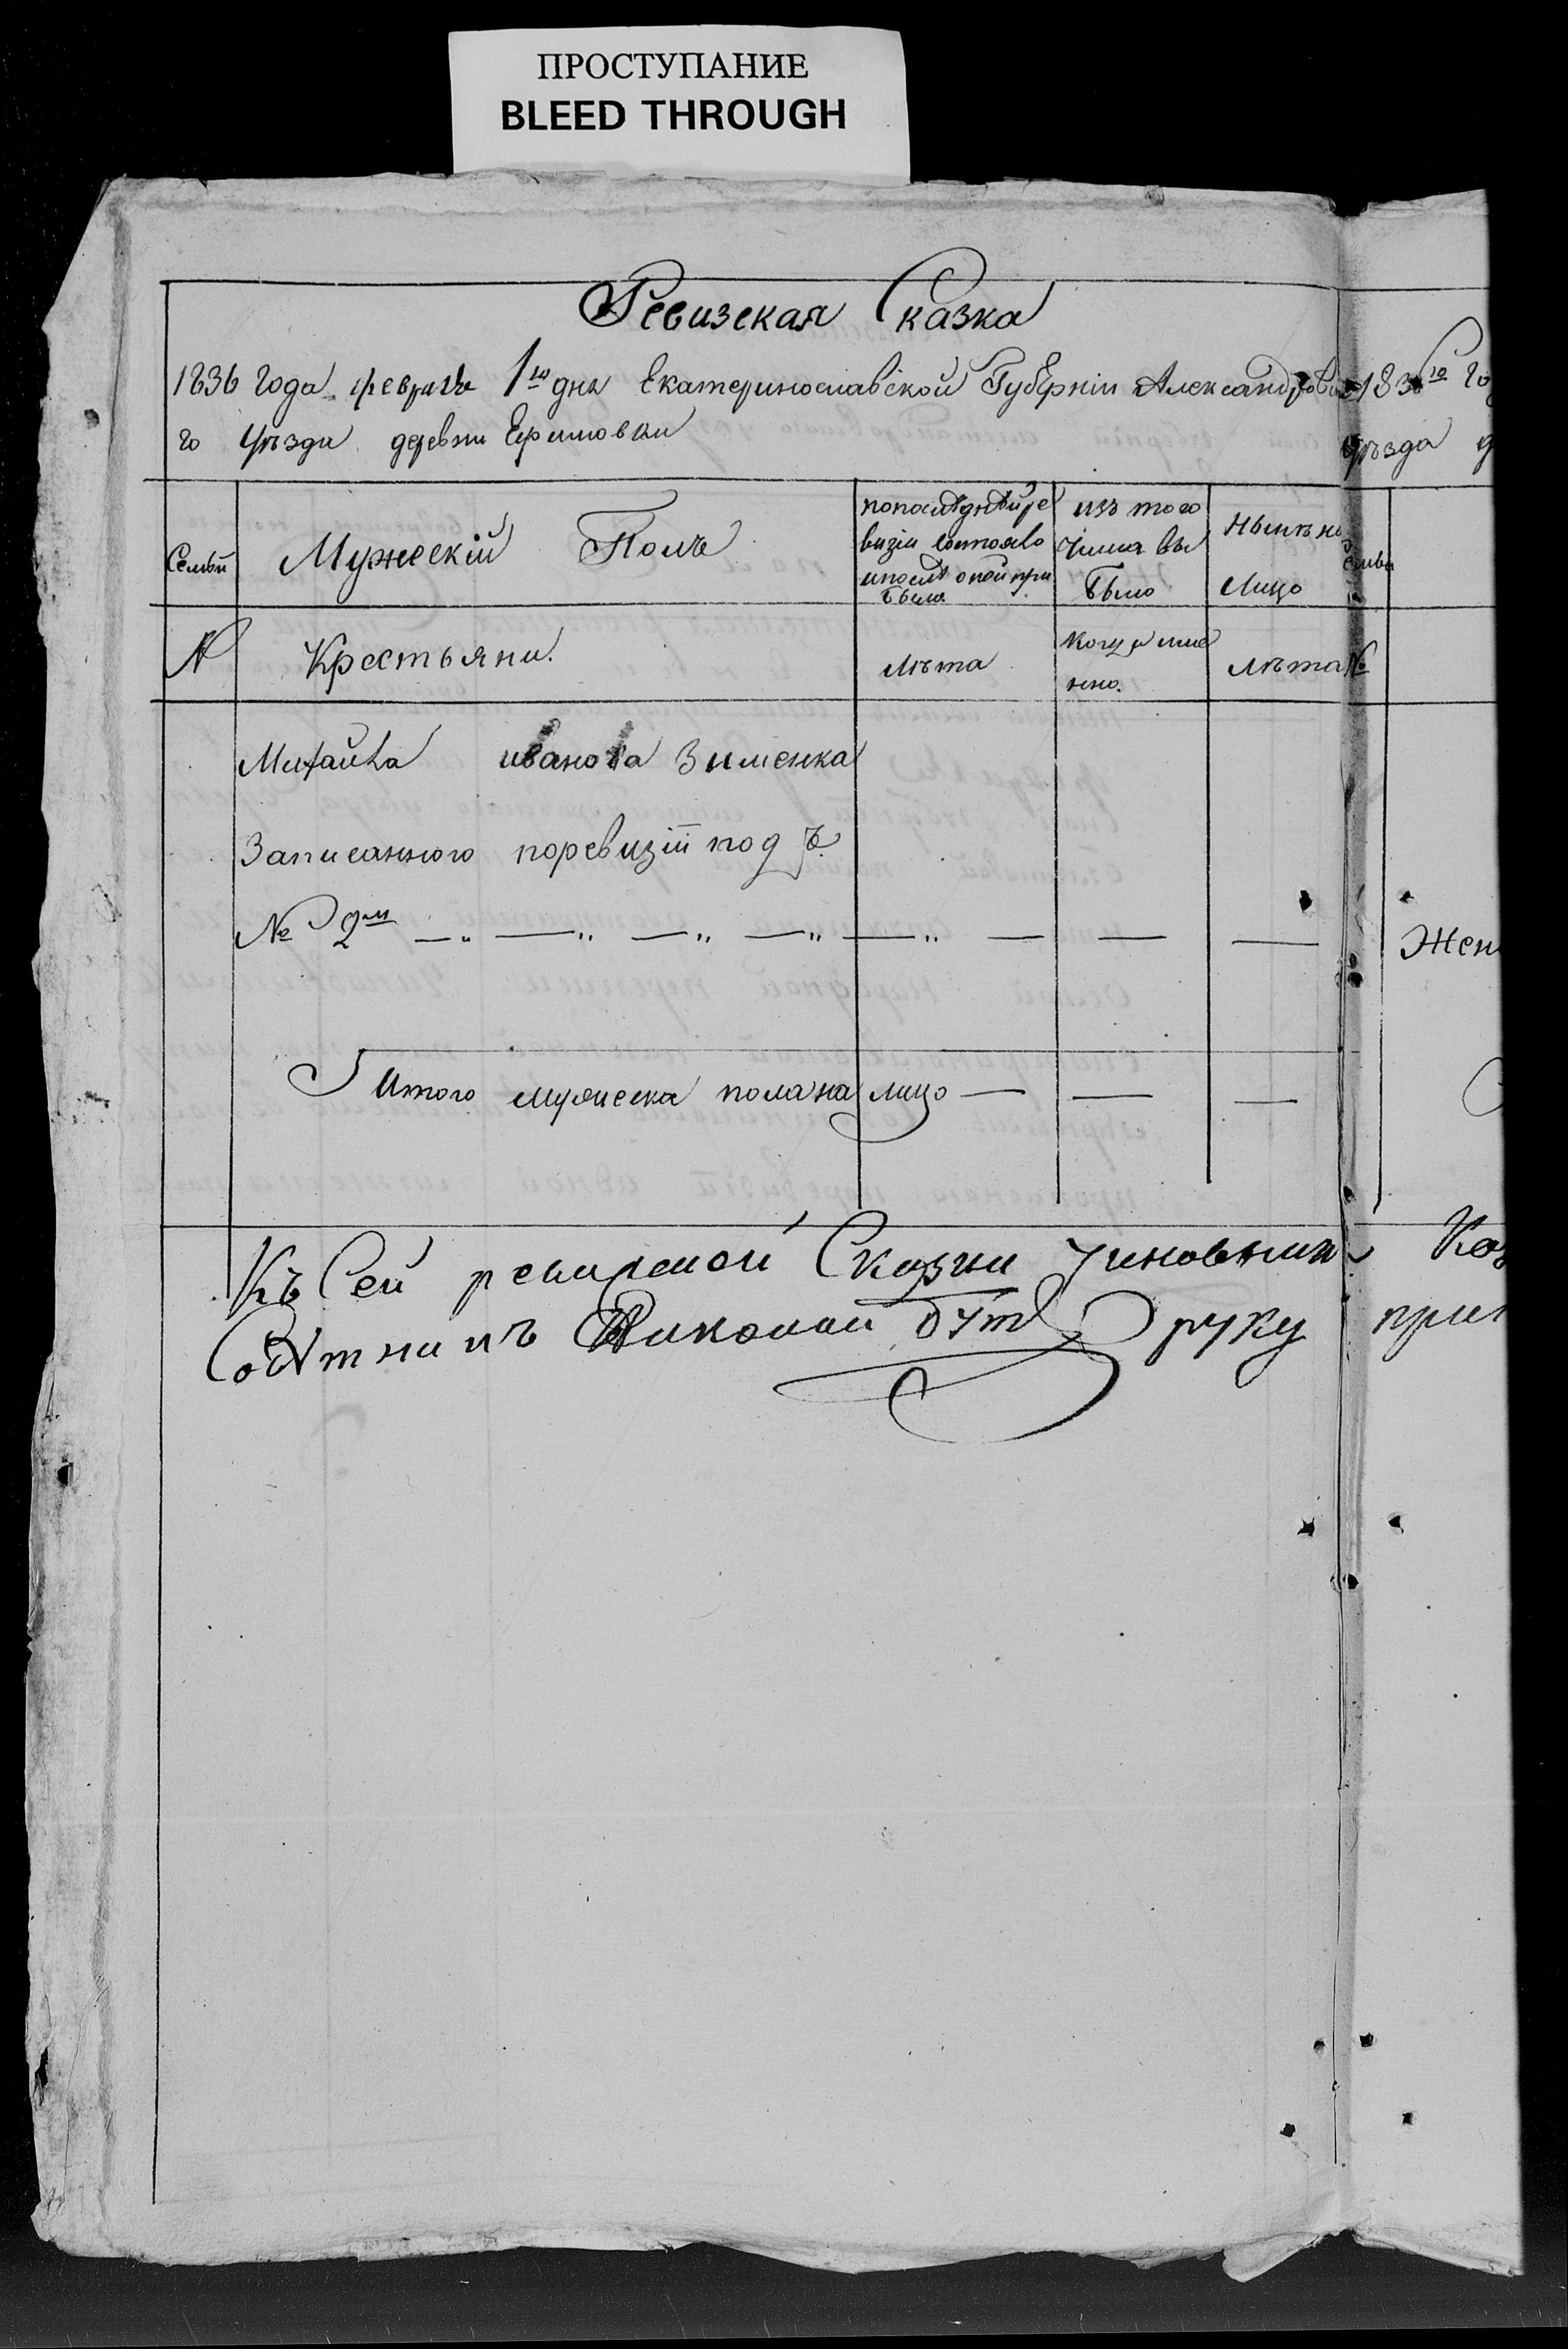 ПРОСТУПАНИЕ
BLEED THROUGH
Ревизская Сказка
1836 года февраля 1го дня Екатеринославской Губернiи Александровска
го уѣзда деревни Ефимовки
Семьи
Мужескiй Полъ
по последней ре
визiи состояло
и после оной при
было
изъ того
числа вы
было
Нынѣ на
Лицо
№
Крестьяни.
лѣта
когда име
нно.
лѣта
Михайла иванова Зименка
Записанного по ревизiи подъ
№ 2м
Итого мужеска пола на лицо
Къ Сей ревизской Сказки
Николай руку
1836го го
уѣзда
семьи
№
Жен
Ко
при